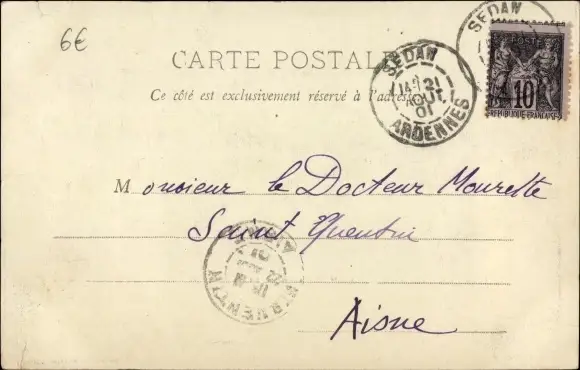 6€
CARTE POSTALE
Ce côté est exclusivement réservé à l'adresse
SEDAN
21
AOUT
01
ARDENNES
SEDAN
10
REPUBLIQUE FRANÇAISE
Monsieur le Docteur Mourette
Saint Quentin
Aisne
ST QUENTIN
22
01
AISNE